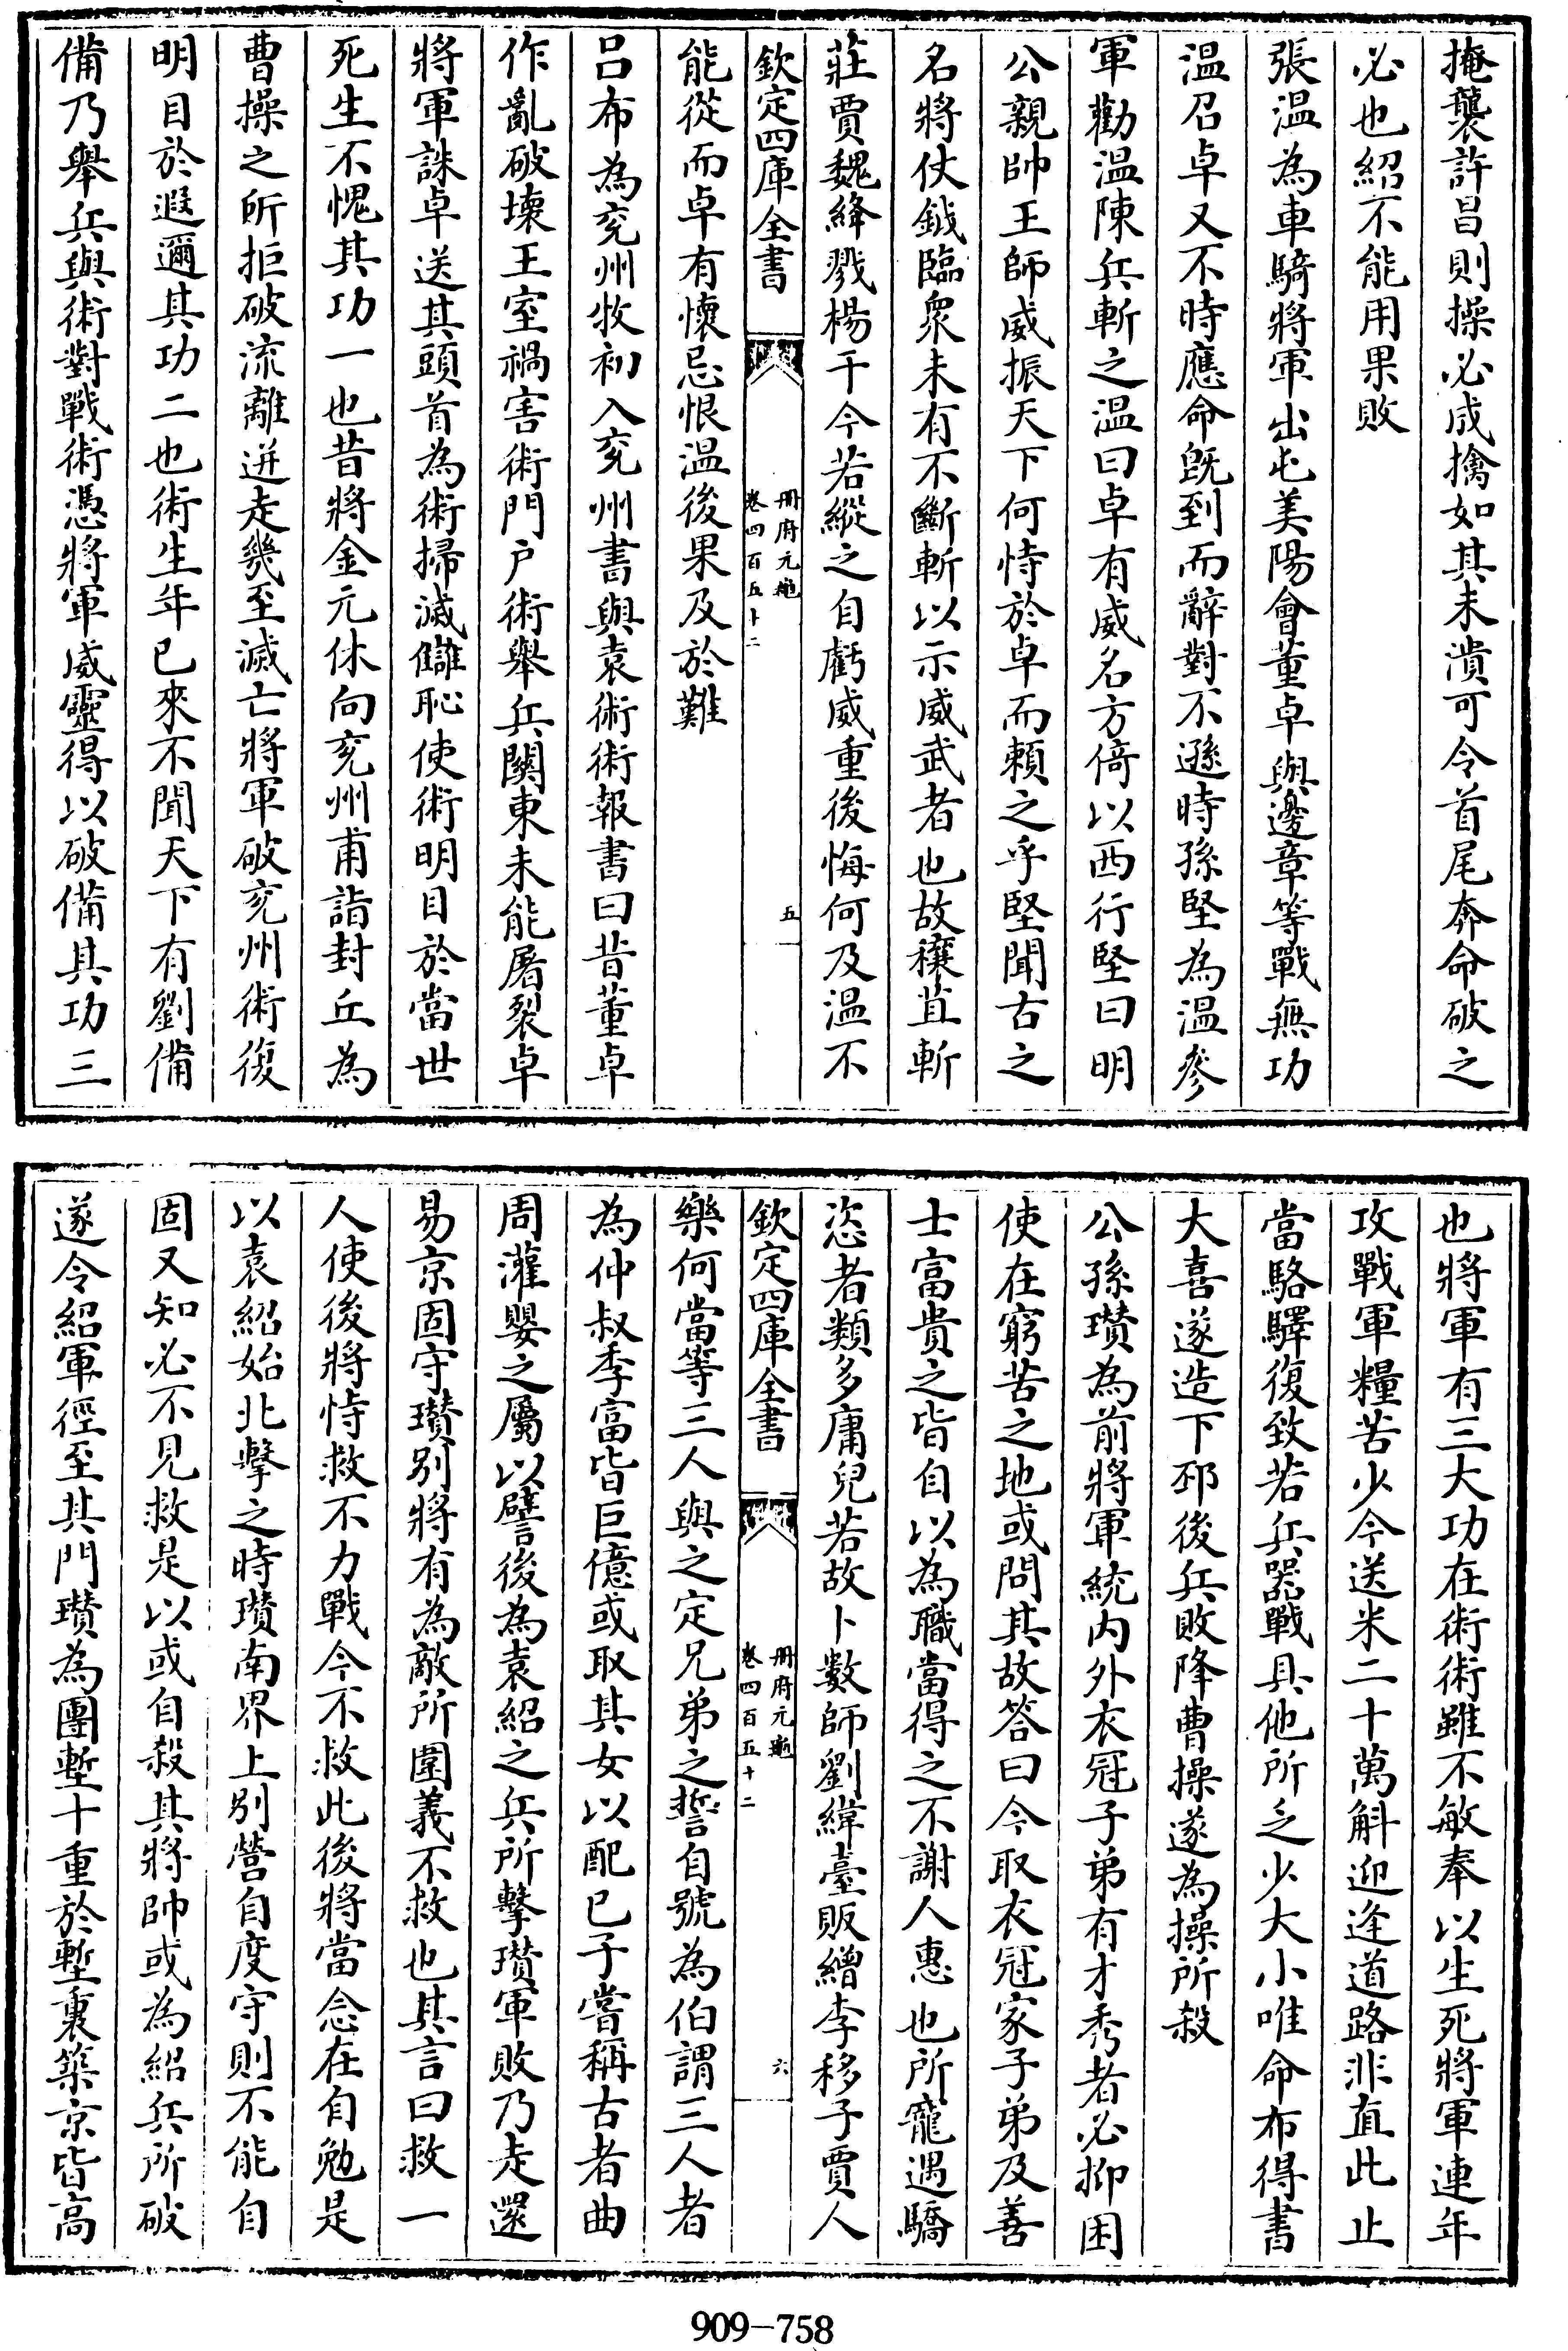 掩襲許昌則操必成擒如其未潰可令首尾奔命破之
必也紹不能用果敗
張温為車騎將軍出屯美陽會董卓與邊章等戰無功
温召卓又不時應命既到而辭對不遜時孫堅為温參
軍勸温陳兵斬之温曰卓有威名方倚以西行堅曰明
公親帥王師威振天下何恃於卓而賴之乎堅聞古之
名將仗鉞臨衆未有不斷斬以示威武者也故穰苴斬
莊賈魏絳戮楊干今若縱之自虧威重後悔何及温不
欽定四庫全書
冊府元龜
卷四百五十二
五
能從而卓有懷忌恨温後果及於難
吕布為兖州牧初入兖州書與袁術術報書曰昔董卓
作亂破壞王室禍害術門户術舉兵關東未能屠裂卓
將軍誅卓送其頭首為術掃滅讎恥使術明目於當世
死生不愧其功一也昔將金元休向兖州甫詣封丘為
曹操之所拒破流離迸走幾至滅亡將軍破兖州術復
明目於遐邇其功二也術生年已來不聞天下有劉備
備乃舉兵與術對戰術憑將軍威靈得以破備其功三
也將軍有三大功在術術雖不敏奉以生死將軍連年
攻戰軍糧苦少今送米二十萬斛迎逢道路非直此止
當駱驛復致若兵器戰具他所乏少大小唯命布得書
大喜遂造下邳後兵敗降曹操遂為操所殺
公孫瓚為前將軍統内外衣冠子弟有才秀者必抑困
使在窮苦之地或問其故答曰今取衣冠家子弟及善
士富貴之皆自以為職當得之不謝人惠也所寵遇驕
恣者類多庸兒若故卜數師劉緯臺販繒李移子賈人
欽定四庫全書
冊府元龜
卷四百五十二
六
樂何當等三人與之定兄弟之誓自號為伯謂三人者
為仲叔季富皆巨億或取其女以配已子嘗稱古者曲
周灌嬰之屬以譬後為袁紹之兵所擊瓚軍敗乃走還
易京固守瓚别將有為敵所圍義不救也其言曰救一
人使後將恃救不力戰今不救此後將當念在自勉是
以袁紹始北擊之時瓚南界上别營自度守則不能自
固又知必不見救是以或自殺其將帥或為紹兵所破
遂令紹軍徑至其門瓚為圍塹十重於塹裏築京皆高
909-758